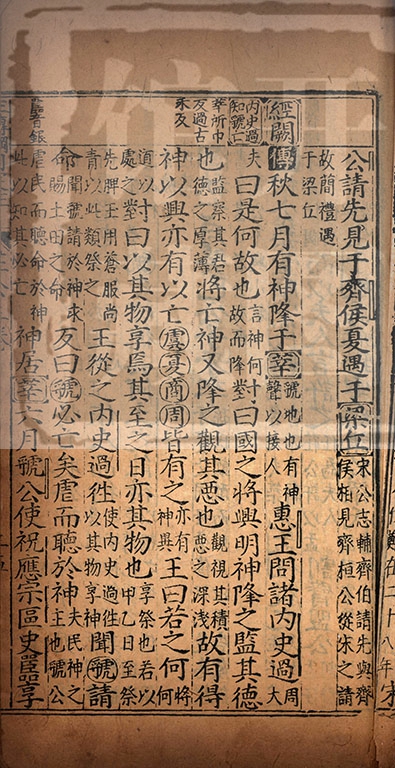 公請先見于齊侯夏遇于梁丘宋公志輔齊伯請先與齊侯相見齊桓公從宋之請
故簡禮遇于梁丘
內史過知虢亡
經闕傳秋七月有神降于莘虢地也有神聲以接人惠王問諸內史過周大
莘所巾反過古禾反
夫曰是何故也言神何故而降對曰國之將興明神降之監其德
也監察其君德之厚薄將亡神又降之觀其惡也觀視其積惡之深淺故有得
神以興亦有以亡虞夏商周皆有之亦有神異王曰若之何何將
以處之對曰以其物享焉其至之日亦其物也享祭也若以甲乙日至祭
先脾王用蒼服尚青以此類祭之王從之內史過往使內史過往以其物享神聞虢請
命聞虢請於神求賜土田之命反曰虢必亡矣虐而聽於神夫民神之主也虢公
嚚音銀
虐民而聽命於神此以知其必亡神居莘六月虢公使祝應宗區史嚚享